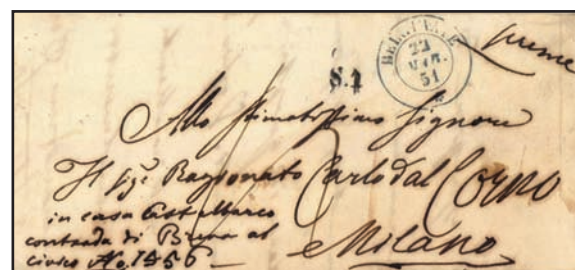 BELGIRATE
22
MAR.
51
preme
S.1
Allo Stimatissimo Signore
Il Sigr. Ragionato Carlo dal Corno
in casa Castelbarco
contrada di Brera al
civico No. 1556
Milano